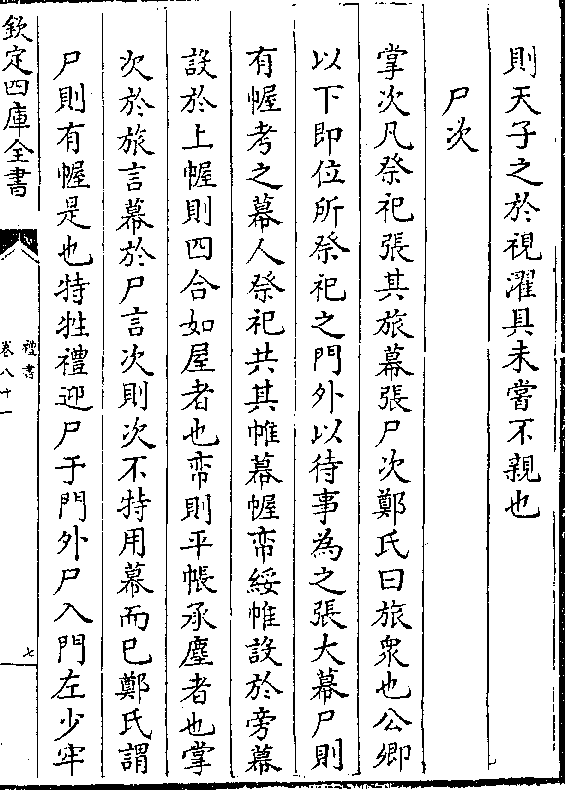 則天子之於視濯具未嘗不親也
尸次
掌次凡祭祀張其旅幕張尸次鄭氏曰旅衆也公卿
以下即位所祭祀之門外以待事為之張大幕尸則
有幄考之幕人祭祀共其帷幕幄帟綬帷設於旁幕
設於上幄則四合如屋者也帟則平帳承塵者也掌
次於旅言幕於尸言次則次不特用幕而已鄭氏謂
尸則有幄是也特牲禮迎尸于門外尸入門左少牢
欽定四庫全書
禮書
卷八十一
七